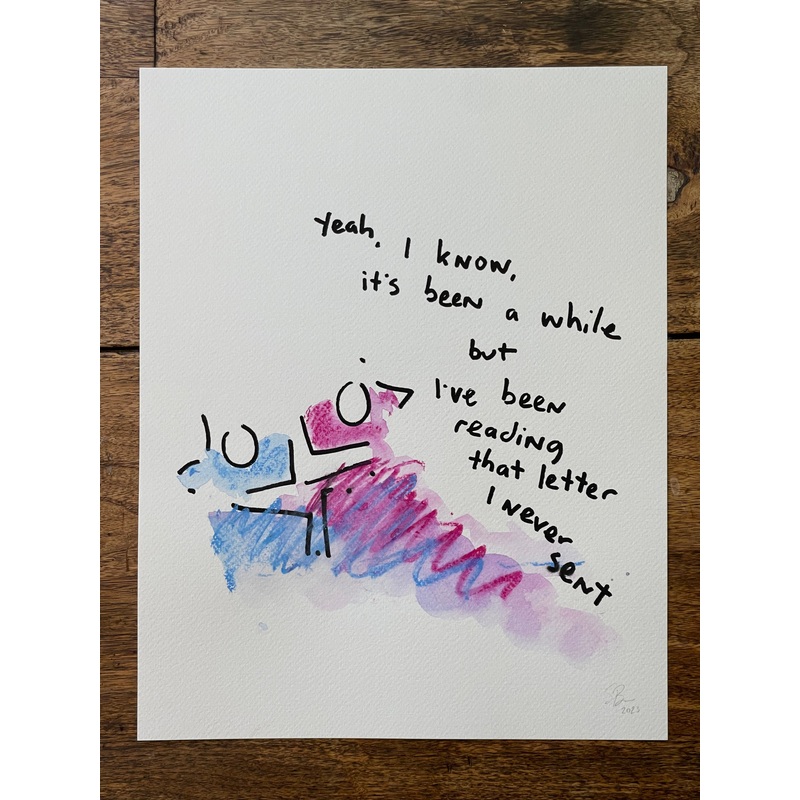 Yeah, I know,
it's been a while
but
I've been
reading
that letter
I never
sent
2023